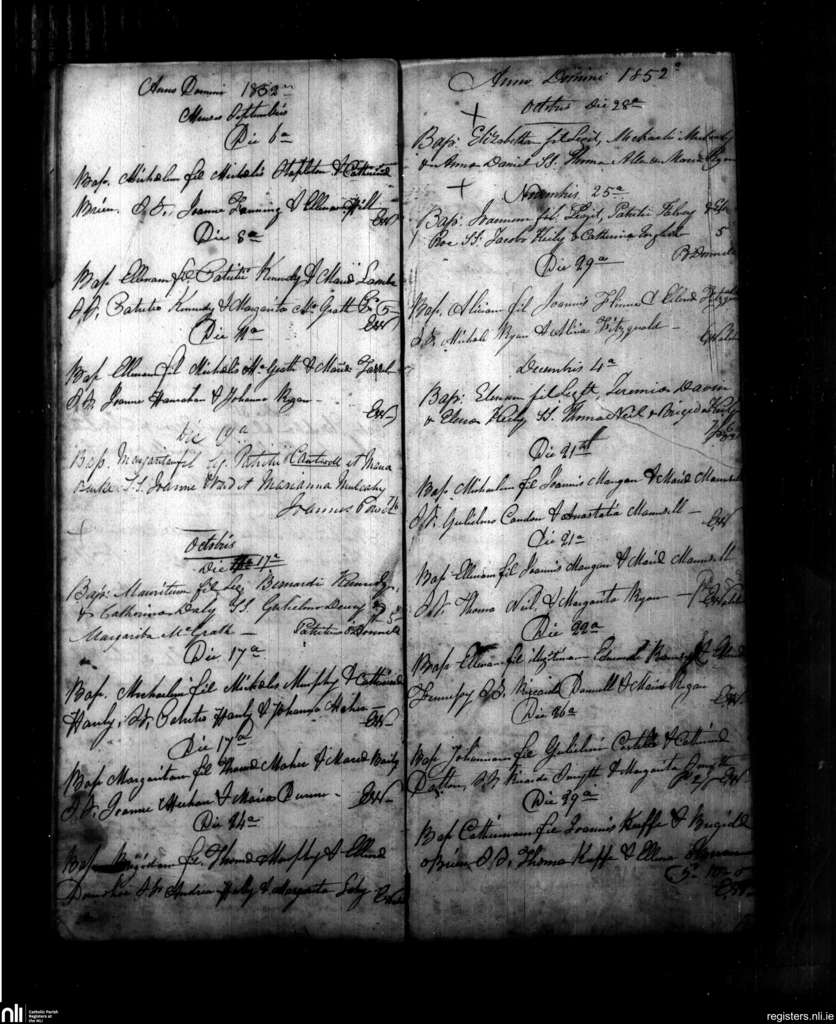 Anno Domini 1852
Mensis Septembris
Die 6a
Bap. Michaelem fil Michaelis Stapleton & Catherine
Brien. S.S. Joanne Fanning & Ellena Hill
EW
Die 8a
Bap Ellenam fil. Patritii Kennedy & Maria Lambe
S.S. Patritio Kennedy & Margarita McGrath 5
EW
Die 11a
Bap Ellenam fil Michaelis McGrath & Maria
S.S. Joanne Hanrahan & Johanna Ryan
EW
Die
Bap. Margaritam fil Leg Patritii Cantwell et Maria
Burke SS. Joanne Ward et Marianna Mulcahy
Joannes Power
Octobris
Die 17a
Bap: Mauritium fil Leg Bernardi Kennedy
& Catherina Daly SS Gulielmo Dewey & 5
Margarita McGrath — Patritius O'Donnell
Die 17a
Bap. Michaelem fil Michaelis Murphy & Catherine
Hanly, S.S. Petritio Hanly & Johanna Maher
EW
Die 17a
Bap Margaritam fil Thoma Maher & Maria
S.S. Joanne Meehan & Maria Dunne — EW
Die 24a
Bap Brigidam fil. Thoma Murphy & Ellena
Donohoe S.S. Andrea & Margarita
Anno Domini 1852o
Octobris Die 28a
Bap: Elizabetha fil Legit, Michaeli
& Anna Daniel SS. Thoma & Maria Ryan
Novembris 25a
Bap: Joannem fil. Legit, Patritii Fahey &
Roe SS. Jacobo Kiely & Catherina English 5
P O'Donnell
Die 29a
Bap. Aliciam fil Joannis & Ellena
S.S. Michael Ryan & Alicia Fitzgerald — E Walsh
Decembris 4a
Bap: Elenam fil Legit, Jeremia Davern
& Elena Kiely SS. Thoma Neil & Brigida Kiely
Die 21a
Bap. Michaelem fil Joannis Mangan & Maria Mansell
S.S. Gulielmo Condon & Anastatia Mansell — EW
Die 21a
Bap Ellenam fil Joannis Mangan & Maria Mansell
S.S. Thoma Neil, & Margarita Ryan —
Die 22a
Bap Ellenam fil illegitimam Edmundi & Ellena
Hennessy S.S. Ricardo Dannell & Maria Ryan
EW
Die 26a
Bap Johannam fil Gulielmi & Catherine
Dalton, S.S. Ricardo Smyth & Margarita Smyth
EW
Die 29a
Bap Catherinam fil Joannis Keffe & Brigida
O Brien S.S. Thoma Keffe & Ellena
5-10-0
nli
Catholic Parish
Registers at
the NLI
registers.nli.ie